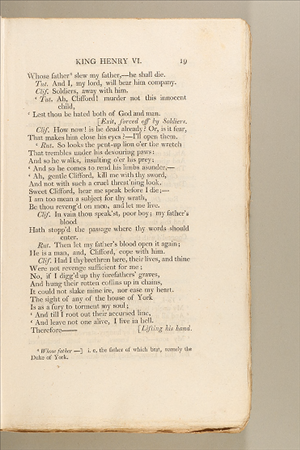 KING HENRY VI. 19
Whose father⁴ slew my father,—he shall die.
Tut. And I, my lord, will bear him company.
Clif. Soldiers, away with him.
‘ Tut. Ah, Clifford! murder not this innocent
child,
‘ Lest thou be hated both of God and man.
[Exit, forced off by Soldiers.
Clif. How now! is he dead already? Or, is it fear,
That makes him close his eyes?—I'll open them.
Rut. So looks the pent-up lion o'er the wretch
That trembles under his devouring paws:
And so he walks, insulting o'er his prey;
‘ And so he comes to rend his limbs asunder.—
‘ Ah, gentle Clifford, kill me with thy sword,
And not with such a cruel threat'ning look.
Sweet Clifford, hear me speak before I die;—
I am too mean a subject for thy wrath,
Be thou reveng'd on men, and let me live.
Clif. In vain thou speak'st, poor boy; my father's
blood
Hath stopp'd the passage where thy words should
enter.
Rut. Then let my father's blood open it again;
He is a man, and, Clifford, cope with him.
Clif. Had I thy brethren here, their lives, and thine
Were not revenge sufficient for me;
No, if I digg'd up thy forefathers' graves,
And hung their rotten coffins up in chains,
It could not slake mine ire, nor ease my heart.
The sight of any of the house of York
Is as a fury to torment my soul;
‘ And till I root out their accursed line,
‘ And leave not one alive, I live in hell.
Therefore—— [Lifting his hand.
⁴ Whose father —] i. e. the father of which brat, namely the
Duke of York.